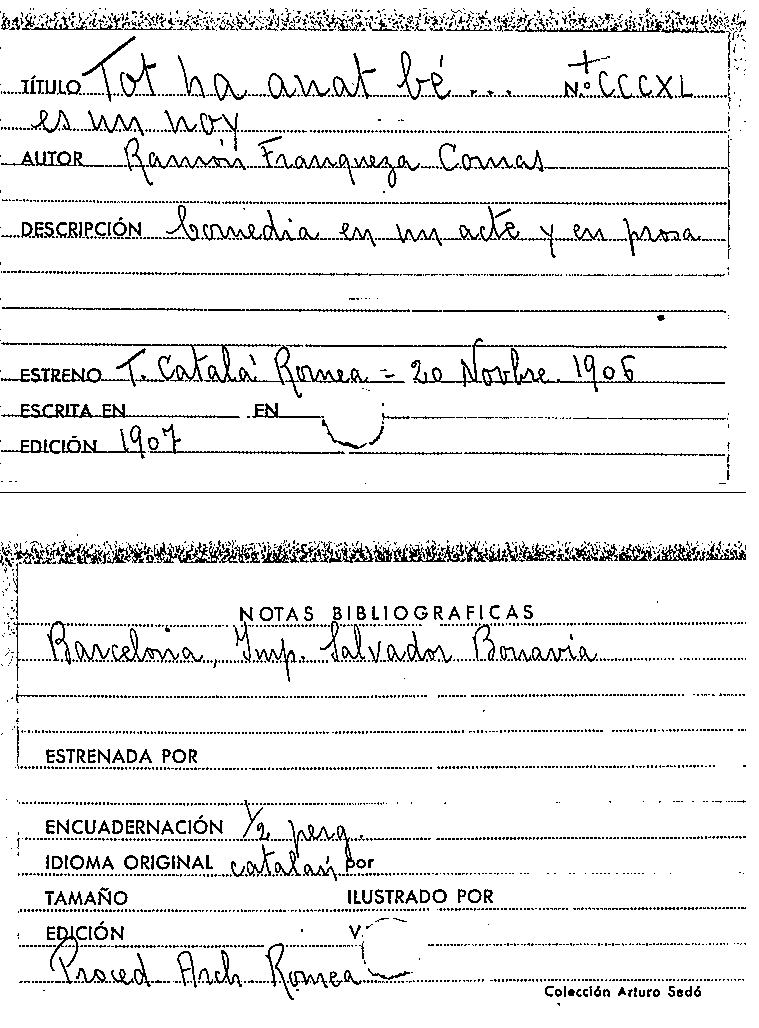 TÍTULO Tot ha anat bé... N.º CCCXL
es un noy
AUTOR Ramón Franqueza Comas
DESCRIPCIÓN Comedia en un acte y en prosa
ESTRENO T. Catalá Romea = 20 Novbre. 1906
ESCRITA EN EN
EDICIÓN 1907
NOTAS BIBLIOGRAFICAS
Barcelona, Imp. Salvador Bonavia
ESTRENADA POR
ENCUADERNACIÓN 1/2 perg.
IDIOMA ORIGINAL catalán por
TAMAÑO ILUSTRADO POR
EDICIÓN V
Proced Arch Romea
Colección Arturo Sedó